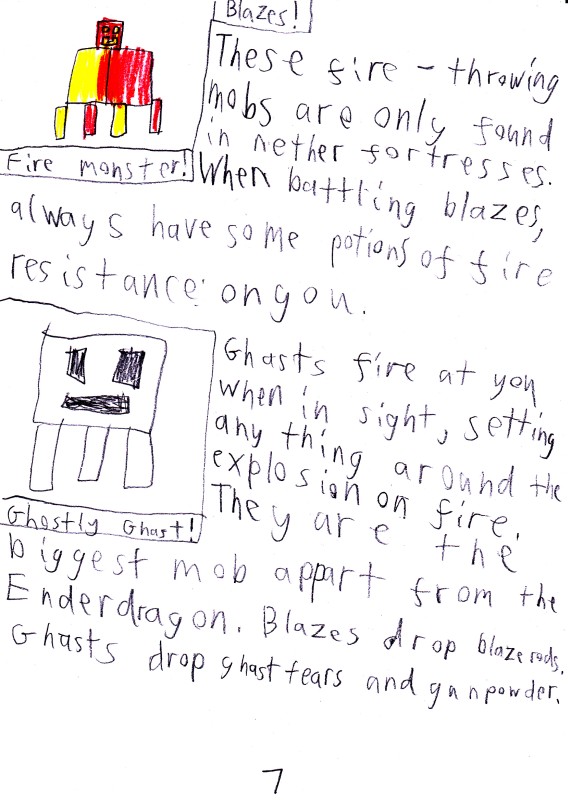 Blazes!
These fire - throwing
mobs are only found
in nether fortresses.
Fire monster!
When battling blazes,
always have some potions of fire
resistance on gou.
Ghasts fire at you
when in sight, setting
any thing around the
explosion on fire.
They are the
Ghostly Ghast!
biggest mob appart from the
Enderdragon. Blazes drop blaze rods.
Ghasts drop ghast tears and gunpowder.
7